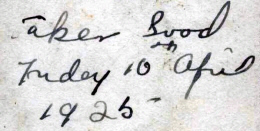 Taken Good
Friday 10th April
1925